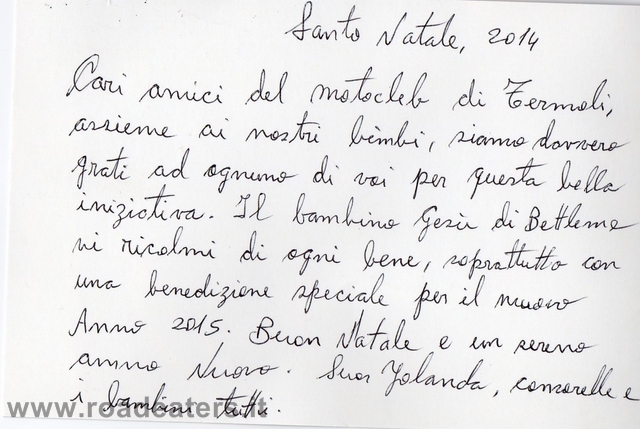 Santo Natale, 2014
Cari amici del motocleb di Termoli,
assieme ai nostri bimbi, siamo davvero
grati ad ognuno di voi per questa bella
iniziativa. Il bambino Gesù di Bettleme
vi ricolmi di ogni bene, soprattutto con
una benedizione speciale per il nuovo
Anno 2015. Buon Natale e un sereno
anno Nuovo. Suor Yolanda, consorelle e
i bambini tutti.
www.roadeaters.it